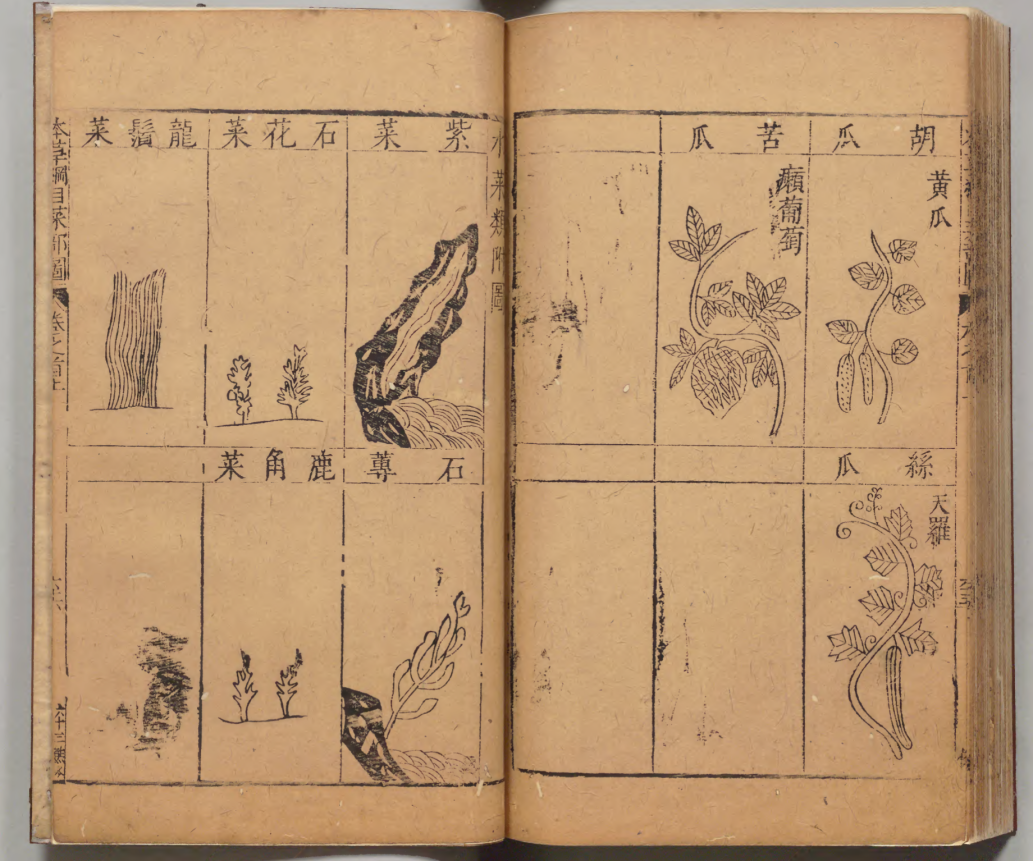 胡瓜
黄瓜
苦瓜
癩葡萄
絲瓜
天羅
水菜類附圖
紫菜
石花菜
龍鬚菜
石蓴
鹿角菜
本草綱目菜部圖
卷之首上